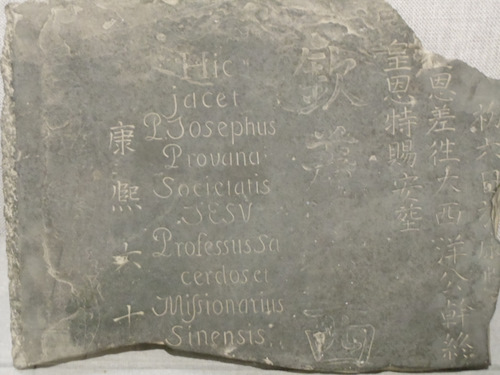 六日
恩差徃大西洋公幹終
皇恩特賜安塋
欽
四
Hic
jacet
P. Josephus
Provana
Societatis
JESV
Professus Sa
cerdos et
Miſsionarius
Sinensis.
康熙六十